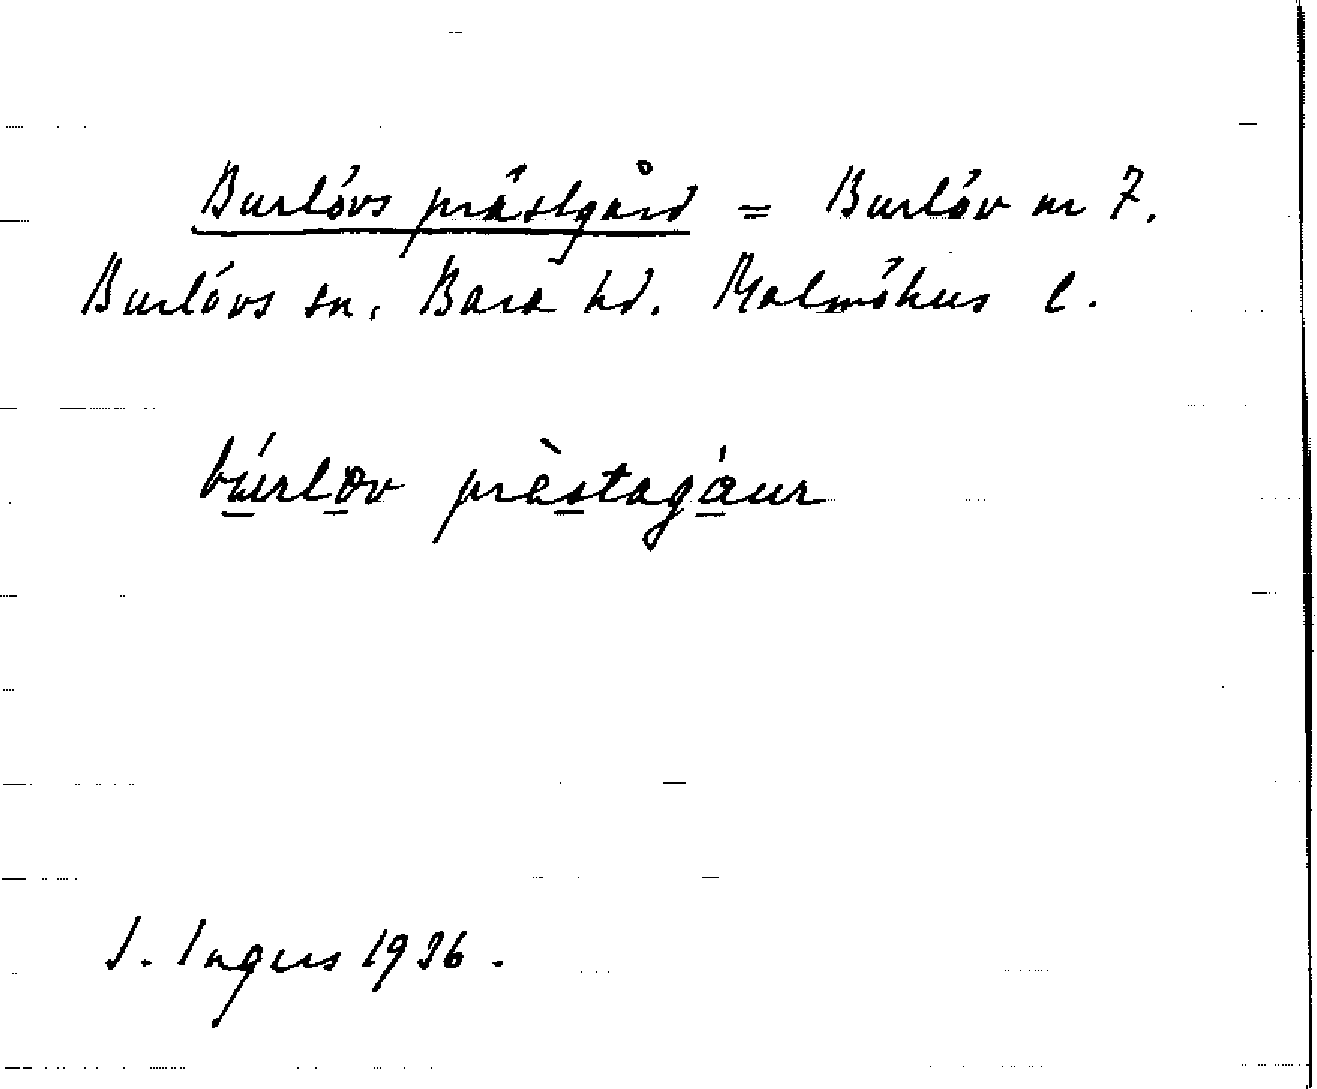 Burlövs prästgård = Burlöv nr 7.
Burlövs sn. Bara hd. Malmöhus l.
búrløv prästagáur
I. Ingers 1936.